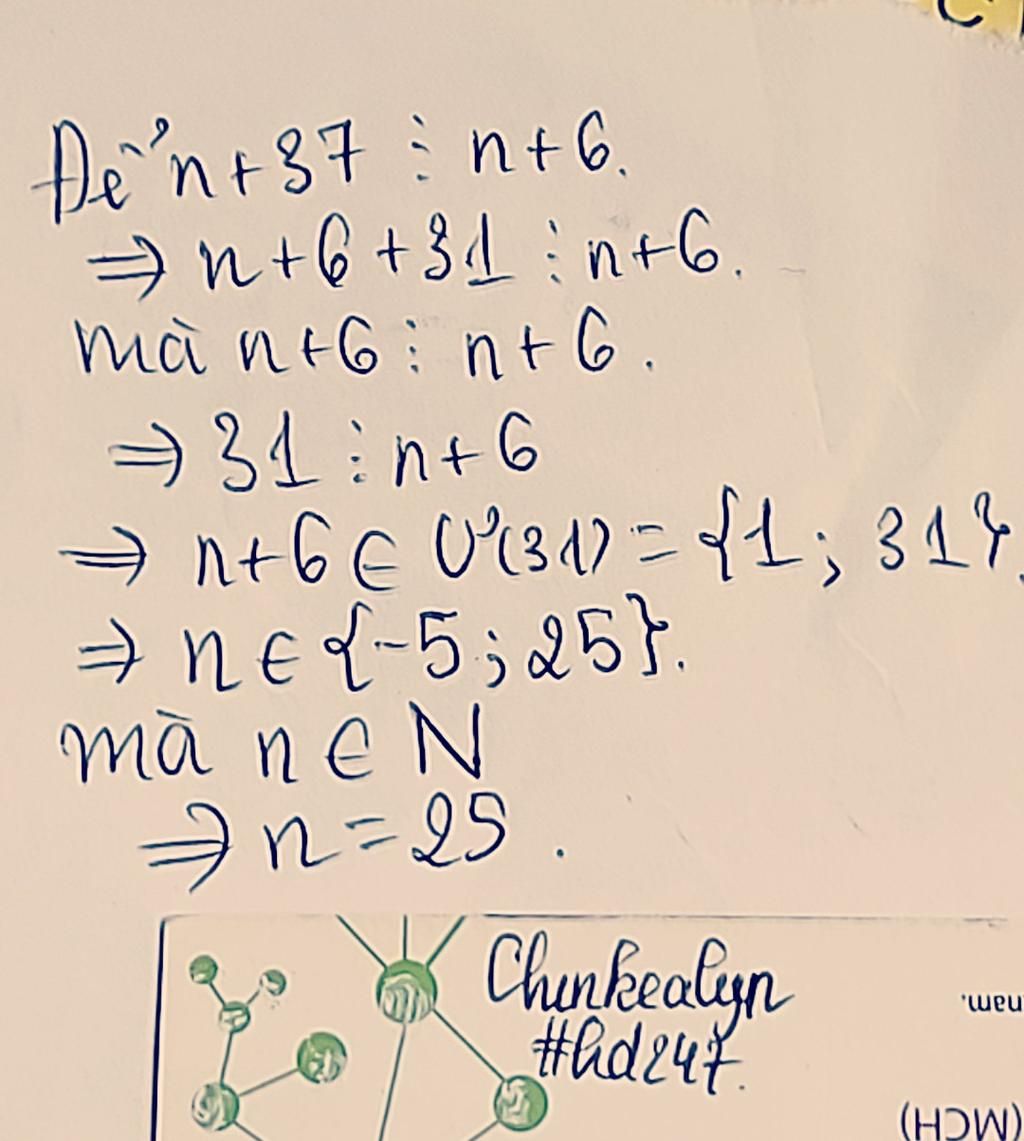 Để n+37 ⋮ n+6.
⇒ n+6+31 ⋮ n+6.
mà n+6 ⋮ n+6.
⇒ 31 ⋮ n+6
⇒ n+6 ∈ Ư(31) = {1; 31}.
⇒ n ∈ {-5; 25}.
mà n ∈ N
⇒ n = 25.
Chunkealyn
#hd247.
nam.
(MCH)